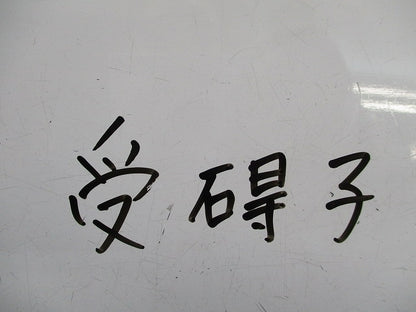 受碍子